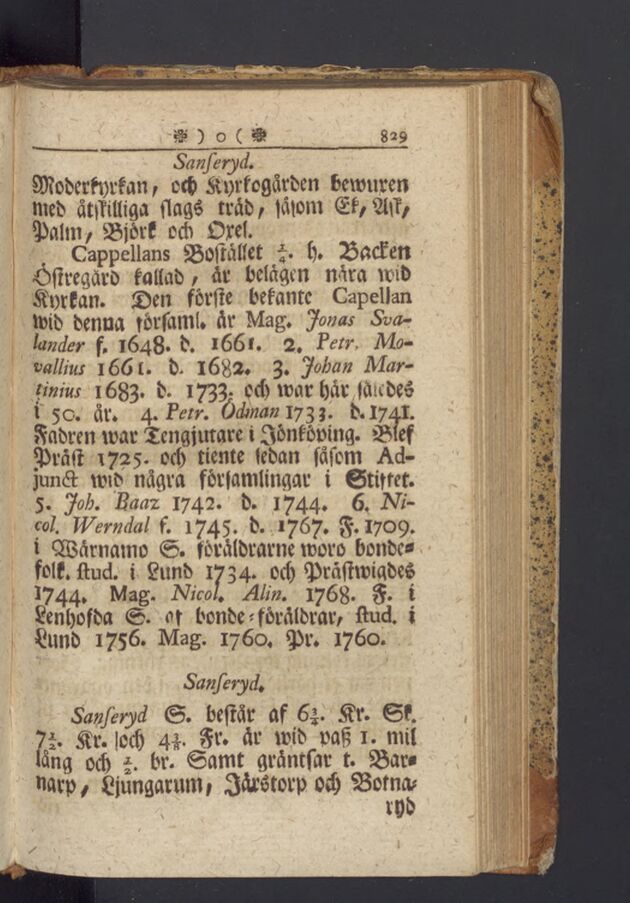 ❉ ) o ( ❉ 829
Sanseryd.
Moderkyrkan, och Kyrkogården bewuxen
med åtskilliga slags träd, såsom Ek, Ask,
Palm, Björk och Oxel.
Cappellans Bostället ¼. h. Backen
Östregård kallad, är belägen nära wid
Kyrkan. Den förste bekante Capellan
wid denna församl. är Mag. Jonas Sva-
lander f. 1648. d. 1661. 2. Petr. Mo-
vallius 1661. d. 1682. 3. Johan Mar-
tinius 1683. d. 1733. och war här således
i 50. år. 4. Petr. Ödman 1733. d. 1741.
Fadren war Tengjutare i Jönköping. Blef
Präst 1725. och tiente sedan såsom Ad-
junct wid några församlingar i Stiftet.
5. Joh. Baaz 1742. d. 1744. 6. Ni-
col. Werndal f. 1745. d. 1767. F. 1709.
i Wärnamo S. föräldrarne woro bonde-
folk. stud. i Lund 1734. och Prästwigdes
1744. Mag. Nicol. Alin. 1768. F. i
Lenhofda S. af bonde-föräldrar, stud. i
Lund 1756. Mag. 1760. Pr. 1760.
Sanseryd.
Sanseryd S. består af 6¾. Kr. Sk.
7½. Kr. och 4⅜. Fr. är wid paß 1. mil
lång och ½. br. Samt gräntsar t. Bar-
narp, Ljungarum, Järstorp och Botna-
ryd